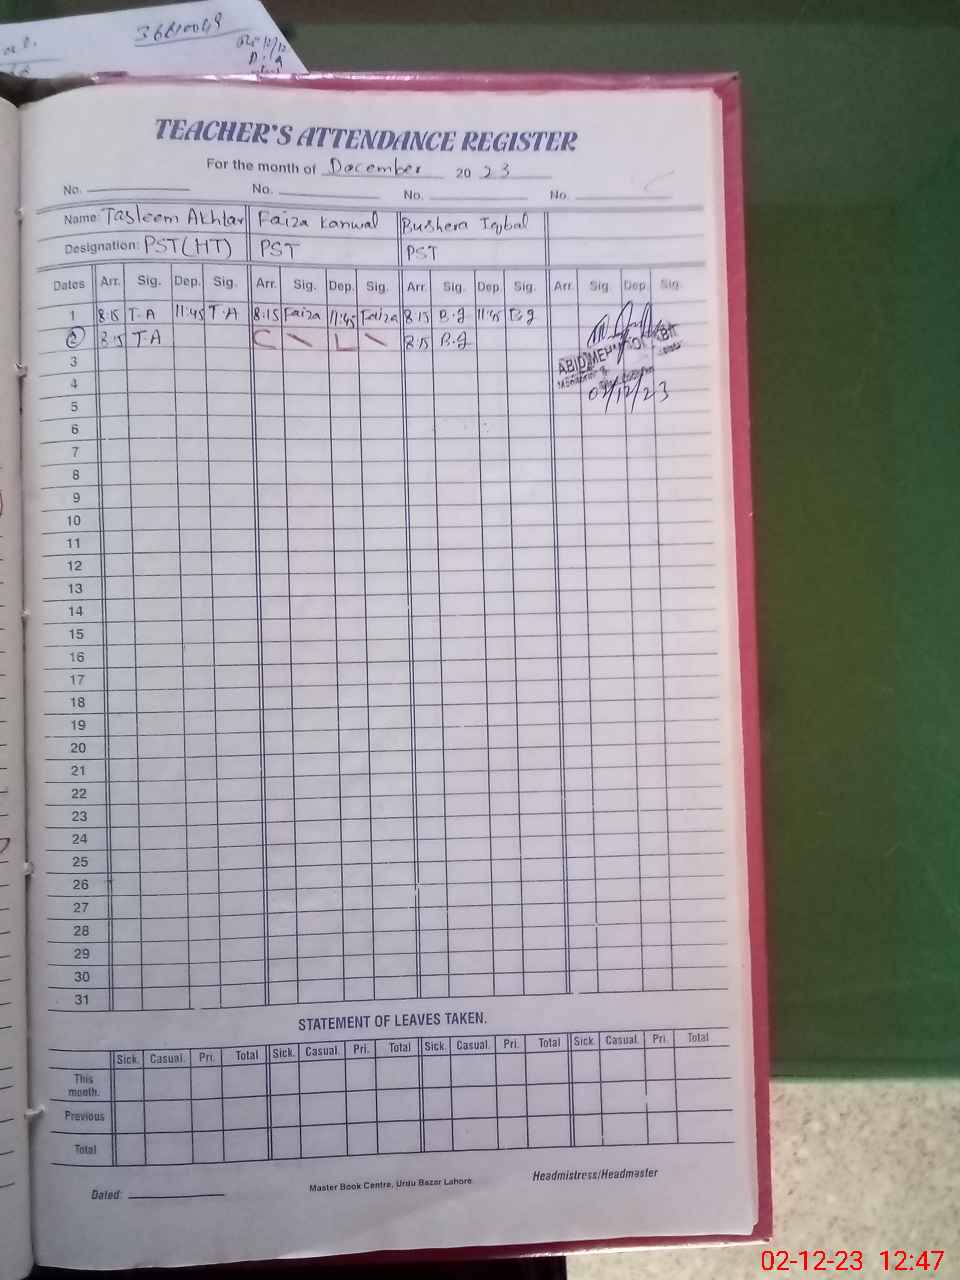 36610049
TEACHER'S ATTENDANCE REGISTER
For the month of December 20 23
No. No. No. No.
Name: Tasleem Akhtar Faiza Kanwal Bushera Iqbal
Designation: PST(HT) PST PST
Dates Arr. Sig. Dep. Sig. Arr. Sig. Dep. Sig. Arr. Sig. Dep. Sig. Arr. Sig. Dep. Sig.
1 8:15 T.A 11:45 T.A 8:15 Faiza 11:45 Faiza 8:15 B.I 11:45 B.I
2 8:15 T.A C L 8:15 B.I
3
ABID MEH
4
02/12/23
5
6
7
8
9
10
11
12
13
14
15
16
17
18
19
20
21
22
23
24
25
26
27
28
29
30
31
STATEMENT OF LEAVES TAKEN.
Sick. Casual. Pri. Total Sick. Casual. Pri. Total Sick. Casual. Pri. Total Sick. Casual. Pri. Total
This
month.
Previous
Total
Dated: Master Book Centre, Urdu Bazar Lahore. Headmistress/Headmaster
02-12-23 12:47